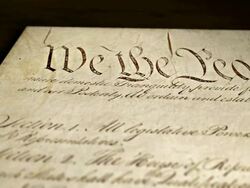 We the Peo
insure domestic Tranquility, provide f
and our Posterity, do ordain and esta
Section 1. All legislative Powers
Representatives.
Section 2. The House of Re